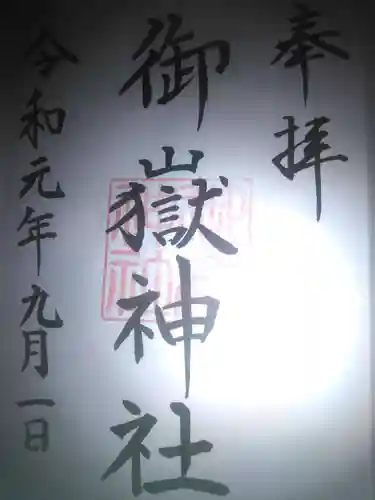 奉拝
御嶽神社
令和元年九月一日